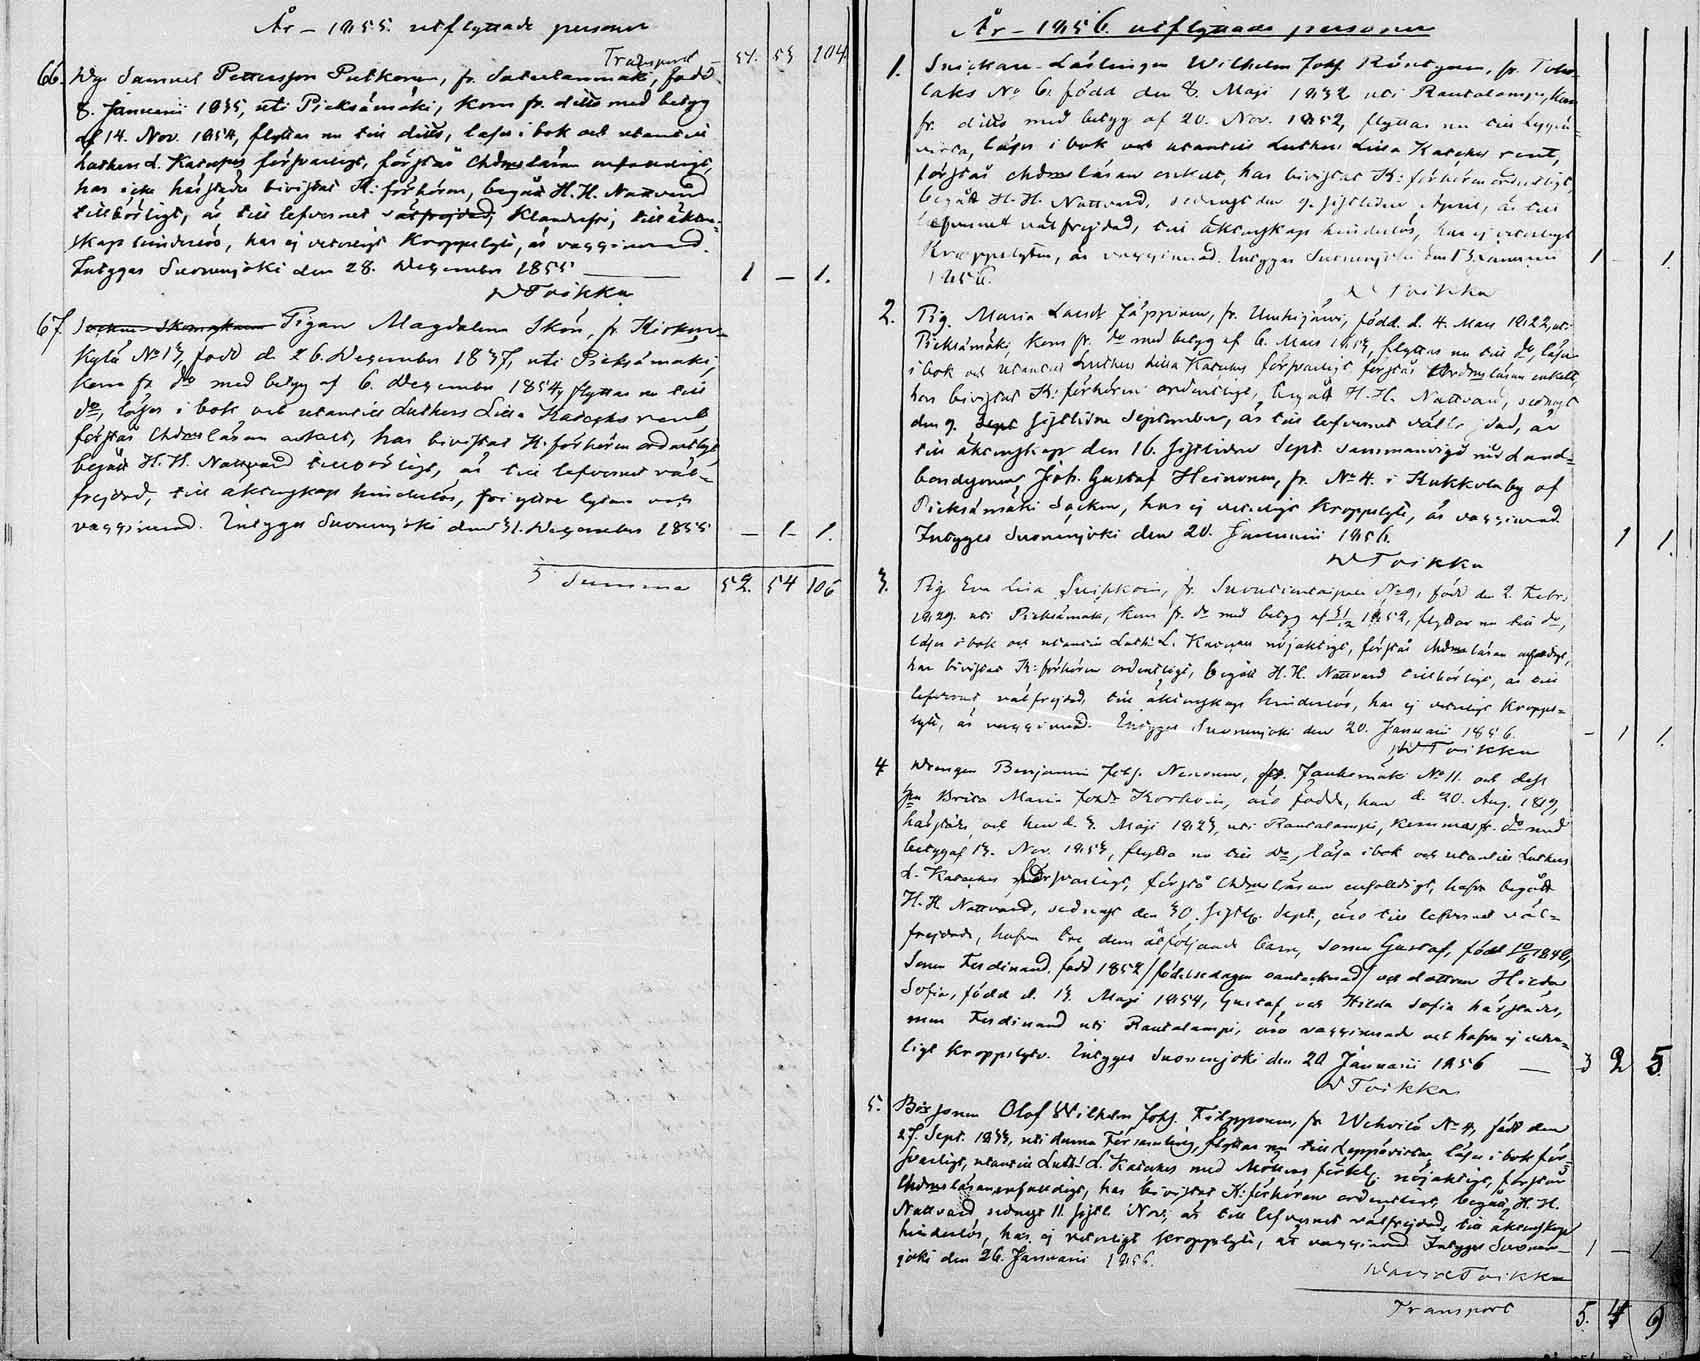 År – 1855. utflyttade personer
Transport 51. 53 104
66. Dge Samuel Pettersson Putkonen, fr. Saterlanmäki, född
8. Januarii 1835, uti Pieksämäki, kom fr. ditto med betyg
af 14. Nov. 1854, flyttar nu till ditto, läser i bok och utantill
Luthers L. Kateches försvarligt, förstår Chdmsläran enfaldigt,
har icke härstädes bivistat K: förhören, begått H. H. Nattvard
tillbörligt, är till lefvernet välfrejdad, till äkten-
skap hinderlös, har ej veterligt Kroppslyte, är vaccinerad.
Intygas Suonenjoki den 28. December 1855 — 1 — 1.
D Toikka
67. Pigan Magdalena Skön, fr. Kirkon-
kylä No 13, född d. 26. December 1837, uti Pieksämäki,
kom fr. do med betyg af 6. December 1854, flyttar nu till
do, läser i bok och utantill Luthers Lilla Kateches rent,
förstår Chdmsläran enkelt, har bivistat K: förhören ordentligt
begått H. H. Nattvard tillbörligt, är till lefvernet väl-
frejdad, till äktenskap hinderlös, fri yttre lyten och
vaccinerad. Intygas Suonenjoki den 31. December 1855 — 1 – 1.
Summa 52. 54 106
År – 1856. utflyttade personer
1. Snickare-Lärlingen Wilhelm Johs. Röntynen, fr.
laks No 6. född den 8. Maji 1832 uti Rautalampi, kom
fr. ditto med betyg af 20. Nov. 1852, flyttar nu till Leppä-
virta, läser i bok och utantill Luthers Lilla Kateches rent,
förstår Chdmsläran enkelt, har bivistat K: förhören ordentligt,
begått H. H. Nattvard, sednast den 9. sistliden April, är till
lefvernet välfrejdad, till äktenskap hinderlös, har ej veterligt
Kroppslyten, är vaccinerad. Intygas Suonenjoki den Januarii 1 – 1.
1856.
D Toikka
2. Pig. Maria Larsdr Jäppinen, fr. Unkijärvi, född d. 4. Mars 1822, uti
Pieksämäki, kom fr. do med betyg af 6. Mars flyttar nu till do, läser
i bok och utantill Luthers Lilla Kateches försvarligt förstår Chdmsläran enkelt,
har bivistat K: förhören ordentligt, begått H. H. Nattvard, sednast
den 9. sistliden September, är till lefvernet är
till äktenskap den 16. sistliden Sept. sammanvigd med Land-
bondesonen Joh. Gustaf Heinonen, fr. No 4. i Kukkola by af
Pieksämäki Socken, har ej veterligt Kroppslyte, är vaccinerad.
Intygas Suonenjoki den 20. Januarii 1856. 1 1.
D Toikka
3. Pig. Eva Lisa fr. Suontientaipale No 9, född den 2. Febr.
1829. uti Pieksämäki, kom fr. do med betyg af 1852, flyttar nu till do,
läser i bok och utantill Luth: L. Kateches nöjaktigt, förstår Chdmsläran enfaldigt,
har bivistat K: förhören ordentligt, begått H. H. Nattvard tillbörligt, är till
lefvernet välfrejdad, till äktenskap hinderlös, har ej veterligt Kropps-
lyte, är vaccinerad. Intygas Suonenjoki den 20. Januarii 1856. – 1 1.
D Toikka
4 Drengen Benjamin Johs. Nenonen, fr. Jauhomäki No 11. och dess
Hu Brita Maria Johsdr Korhoin, äro födde, han d. 20. Aug. 1819,
härstädes, och hon d. 3. Maji 1823, uti Rautalampi, komma fr. do med
betyg af 13. Nov. 1853, flytta nu till do, läsa i bok och utantill Luthers
L. Kateches försvarligt, förstå Chdmsläran enfaldigt, hafva begått
H. H. Nattvard, sednast den 30. sistl. Sept., äro till lefvernet väl-
frejdade, hafva tre dem åtföljande barn, sonen Gustaf, född 10/6 1848,
Sonen Ferdinand, född 1852 /födelsedagen oantecknad/ och dottren Hilda
Sofia, född d. 13. Maji 1854, Gustaf och Hilda Sofia härstädes,
men Ferdinand uti Rautalampi, äro vaccinerade och hafva ej veter-
ligt Kroppslyte. Intygas Suonenjoki den 20 Januarii 1856 — 3 2 5.
D Toikka
5. Olof Wilhelm Johs. Filpponen, fr. Wehvilä No 4, född den
27. Sept. 1833, uti denna Församling, flyttar nu till Leppävirta, läser i bok för-
svarligt, utantill Luth: L. Kateches med Möllers förkl. nöjaktigt, förstår
Chdmsläran enfaldigt, har bivistat K: förhören ordentligt, begått H. H.
Nattvard sednast 11. sistl. Nov., är till lefvernet välfrejdad, till äktenskap
hinderlös, har ej veterligt kroppslyte, är vaccinerad. Intygas Suonen- 1 – 1
joki den 26. Januarii 1856.
David Toikka
Transport 5. 4 9